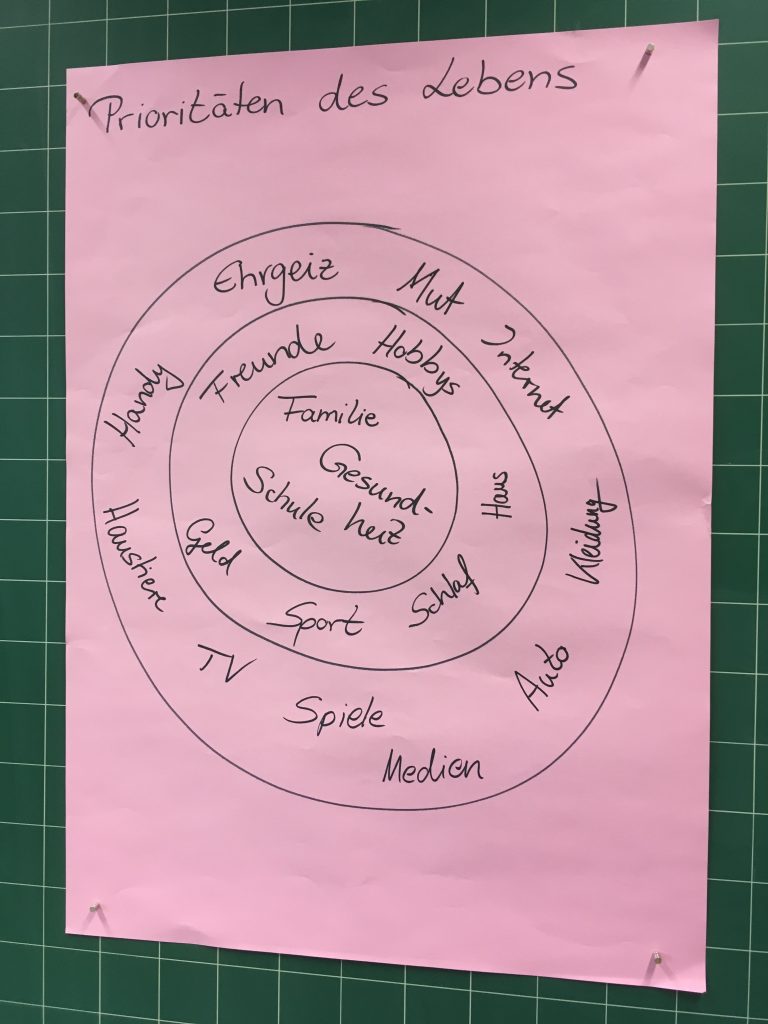 Prioritäten des Lebens
Ehrgeiz
Mut
Internet
Handy
Freunde
Hobbys
Familie
Gesund-
heit
Schule
Haus
Kleidung
Haustiere
Geld
Sport
Schlaf
TV
Auto
Spiele
Medien